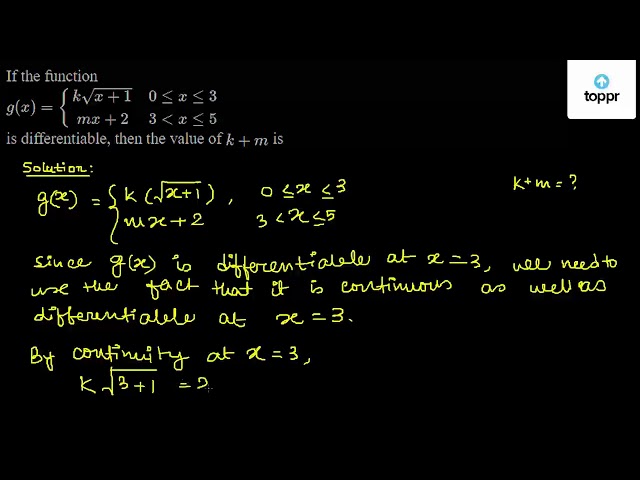 If the function
g(x) = { k√x + 1 0 ≤ x ≤ 3
mx + 2 3 < x ≤ 5
is differentiable, then the value of k + m is
toppr
Solution:
g(x) = { k (√x+1) , 0 ≤ x ≤ 3
mx + 2 3 < x ≤ 5
k+m = ?
Since g(x) is differentiable at x = 3, we need to
use the fact that it is continuous as well as
differentiable at x = 3.
By continuity at x = 3,
k √3+1 = 2